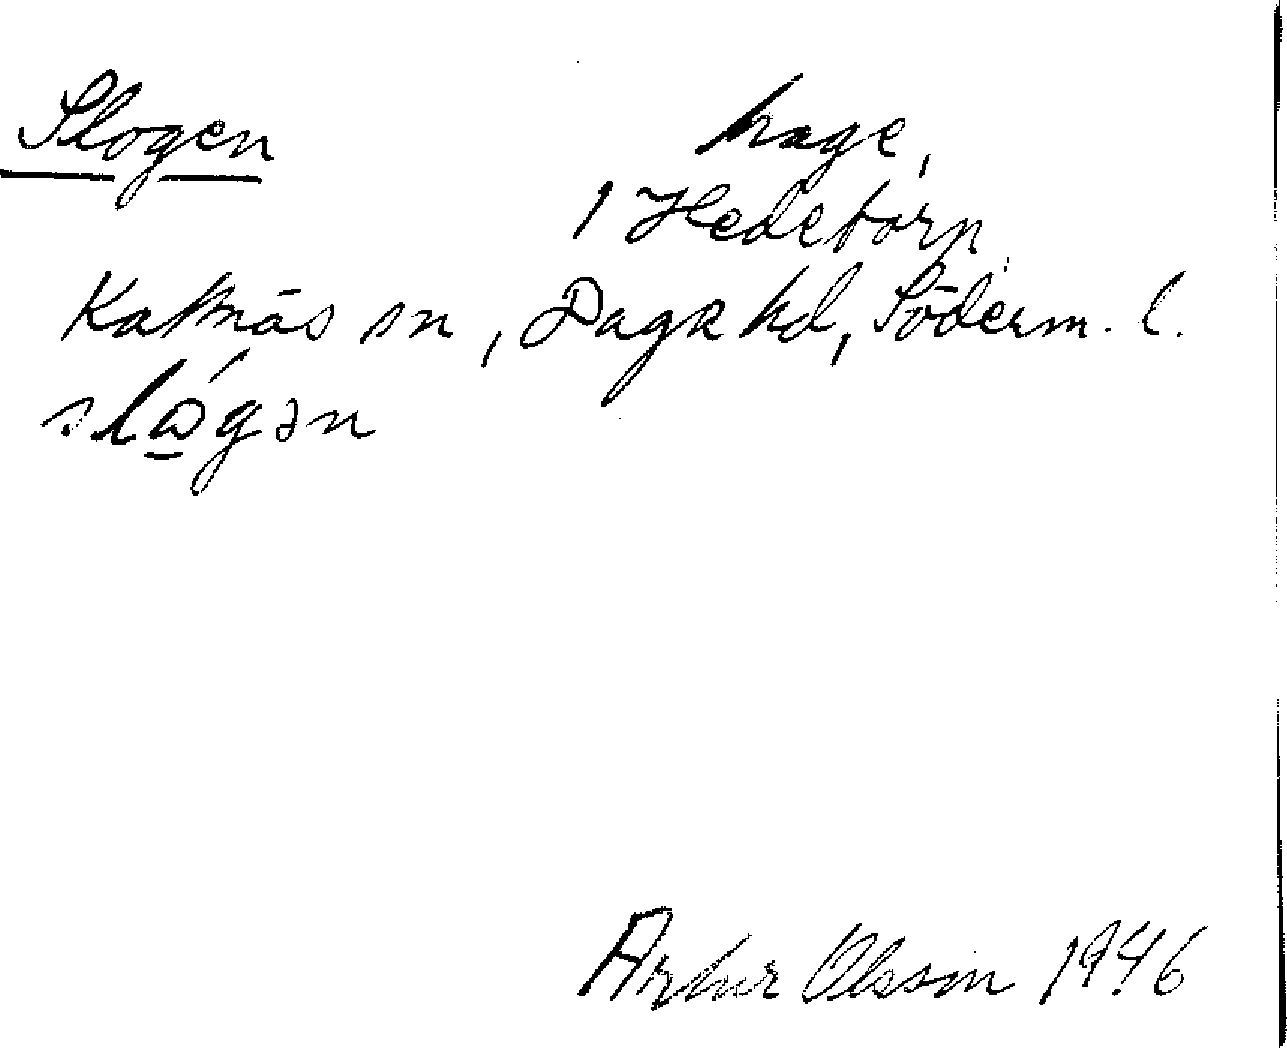 Slogen hage,
1 Hedetorp
Kattnäs sn, Daga hd, Söderm. l.
slɷ̱́gən
Artur Olsson 1946